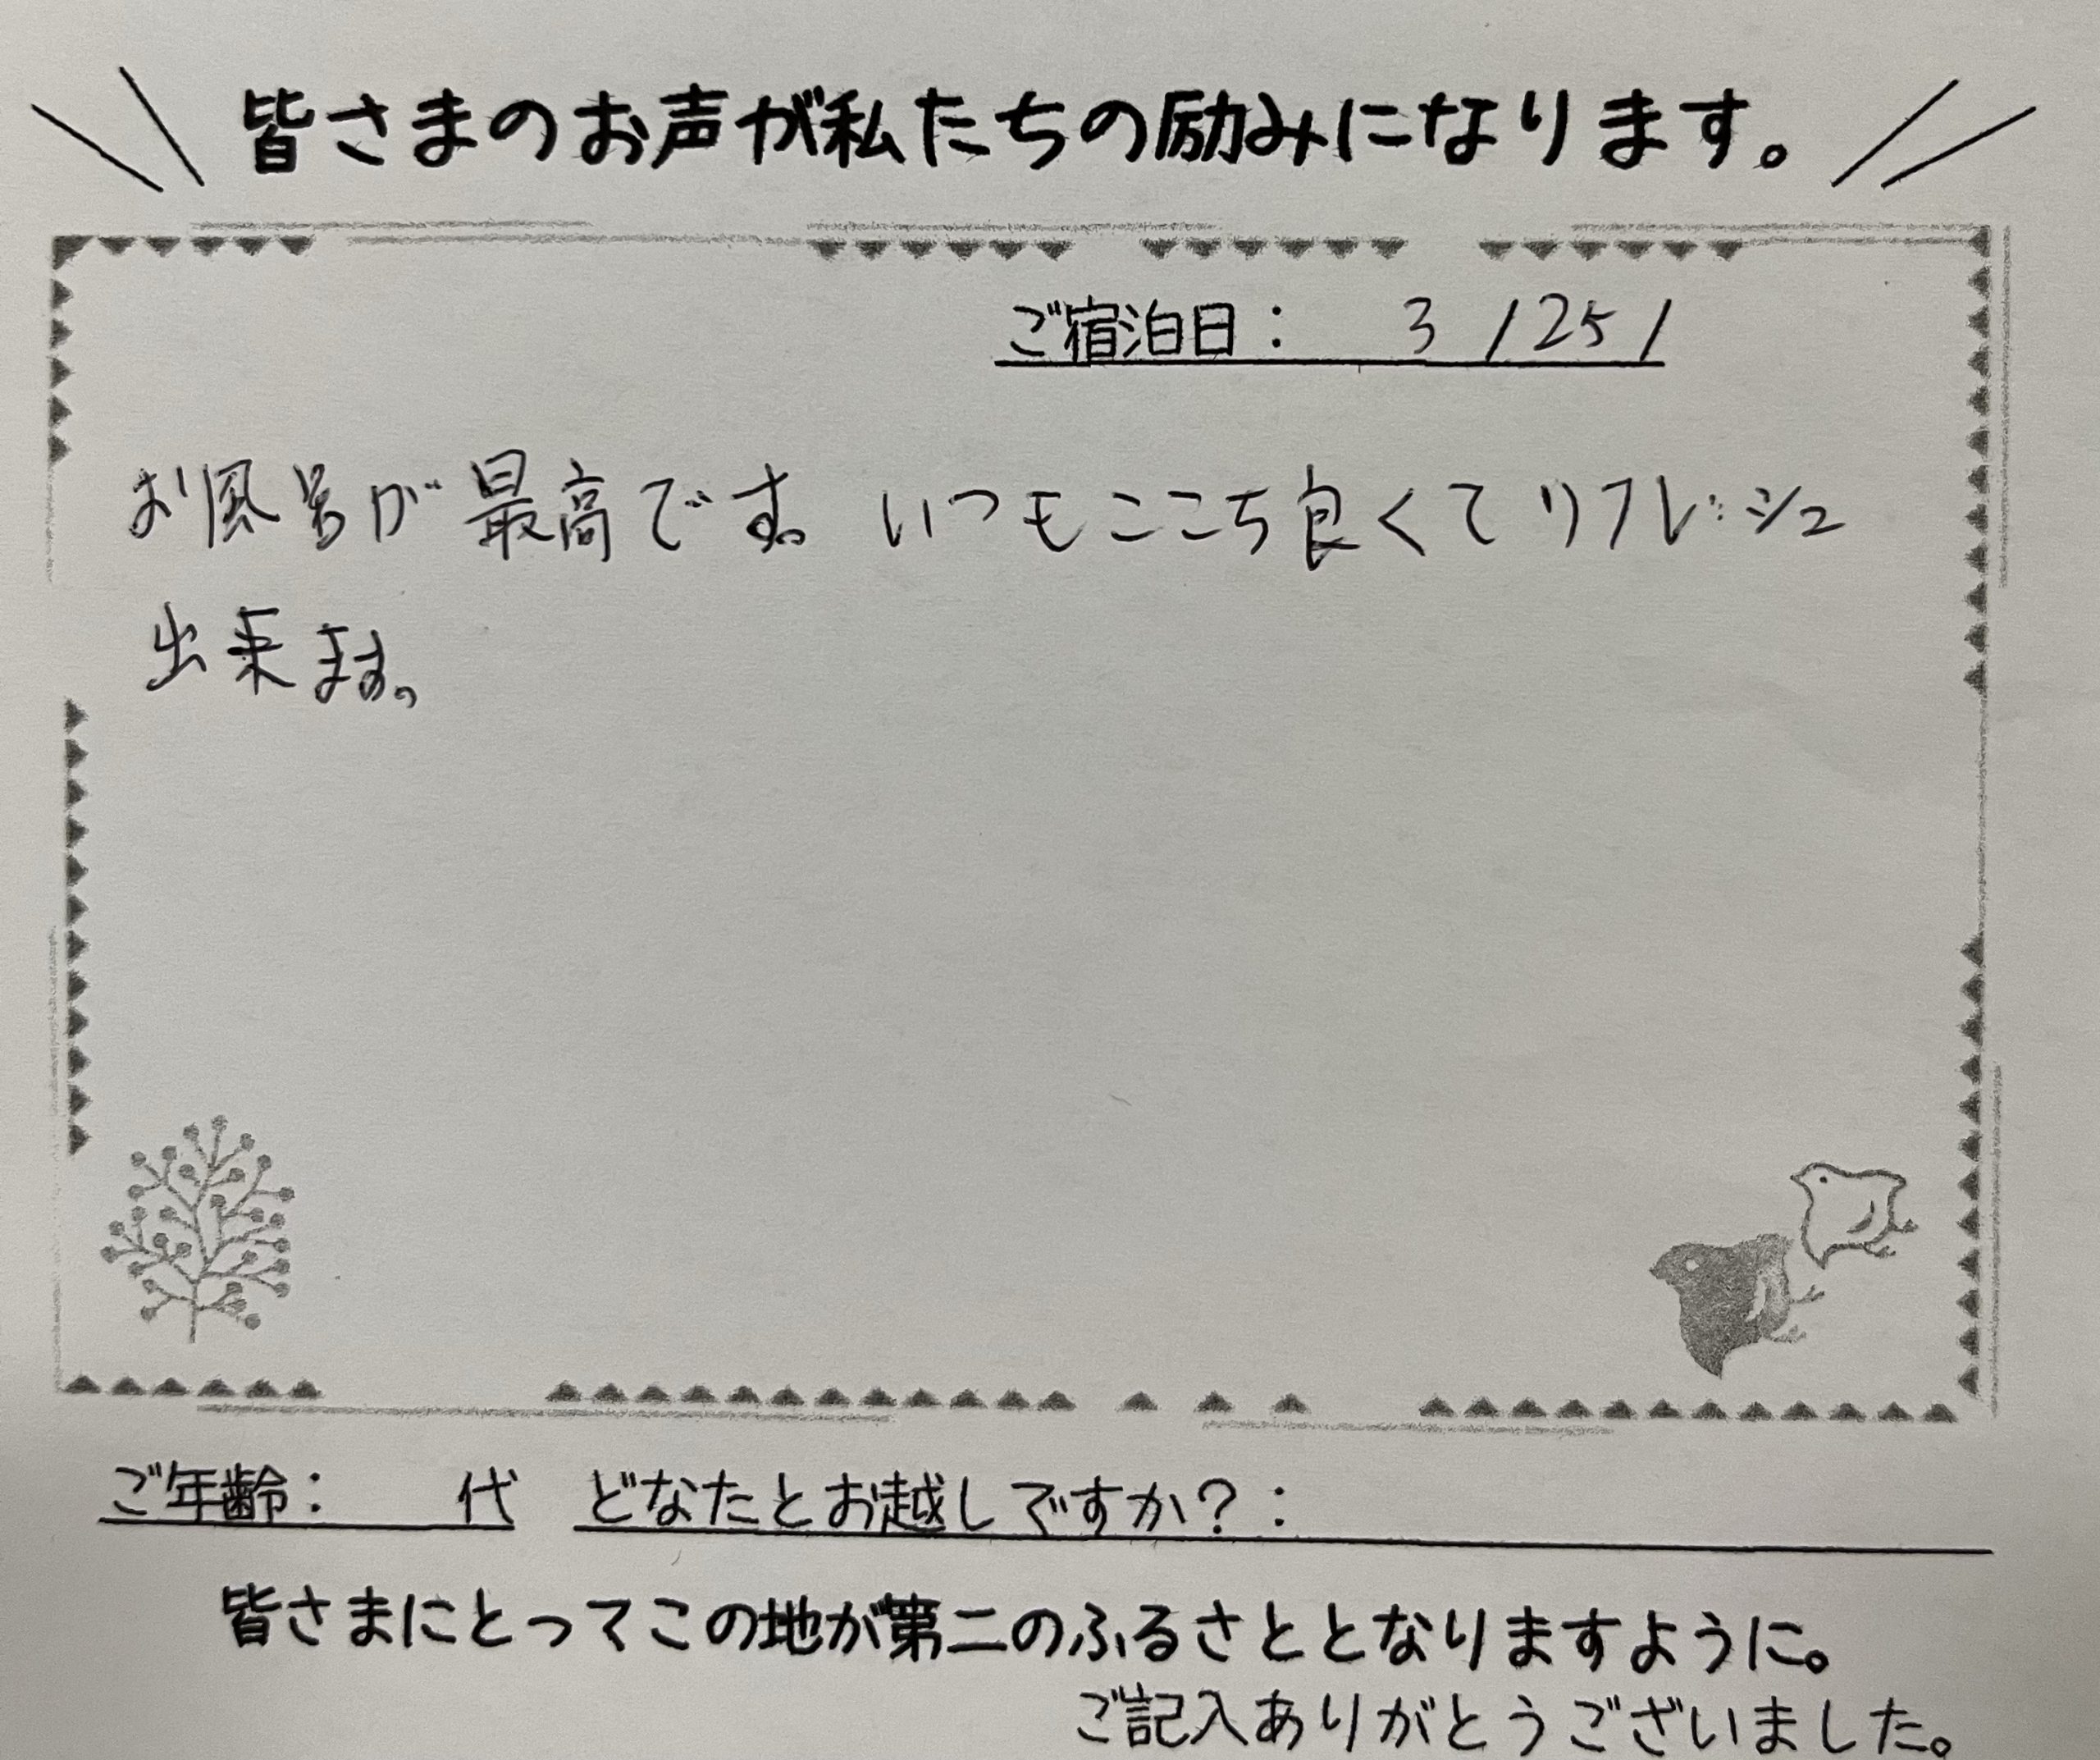 皆さまのお声が私たちの励みになります。
ご宿泊日: 3 / 25 /
お風呂が最高です。いつもここち良くてリフレッシュ
出来ます。
ご年齢: 代 どなたとお越しですか?:
皆さまにとってこの地が第二のふるさととなりますように。
ご記入ありがとうございました。